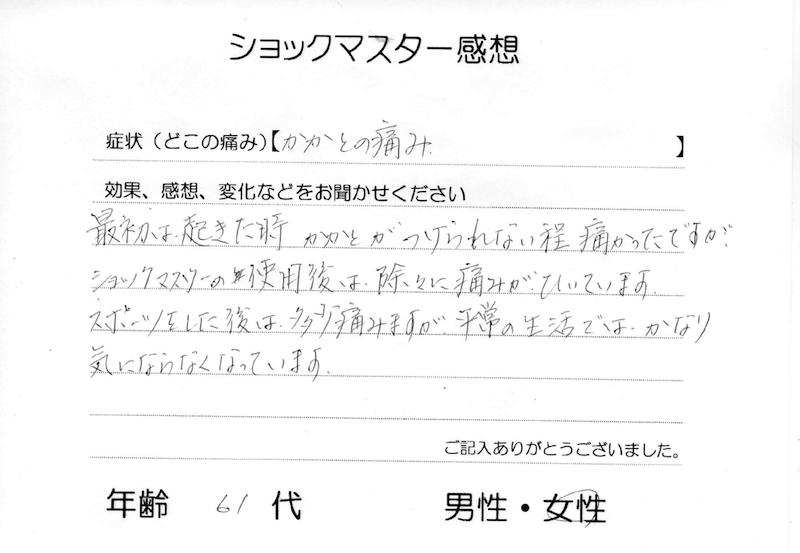 ショックマスター感想
症状(どこの痛み)【かかとの痛み 】
効果、感想、変化などをお聞かせください
最初は、起きた時 かかとがつけられない程 痛かったですが、
ショックマスターの使用後は、除々に痛みがひいています。
スポーツをした後は、多少痛みますが、平常の生活では、かなり
気にならなくなっています。
ご記入ありがとうございました。
年齢 61 代 男性・女性